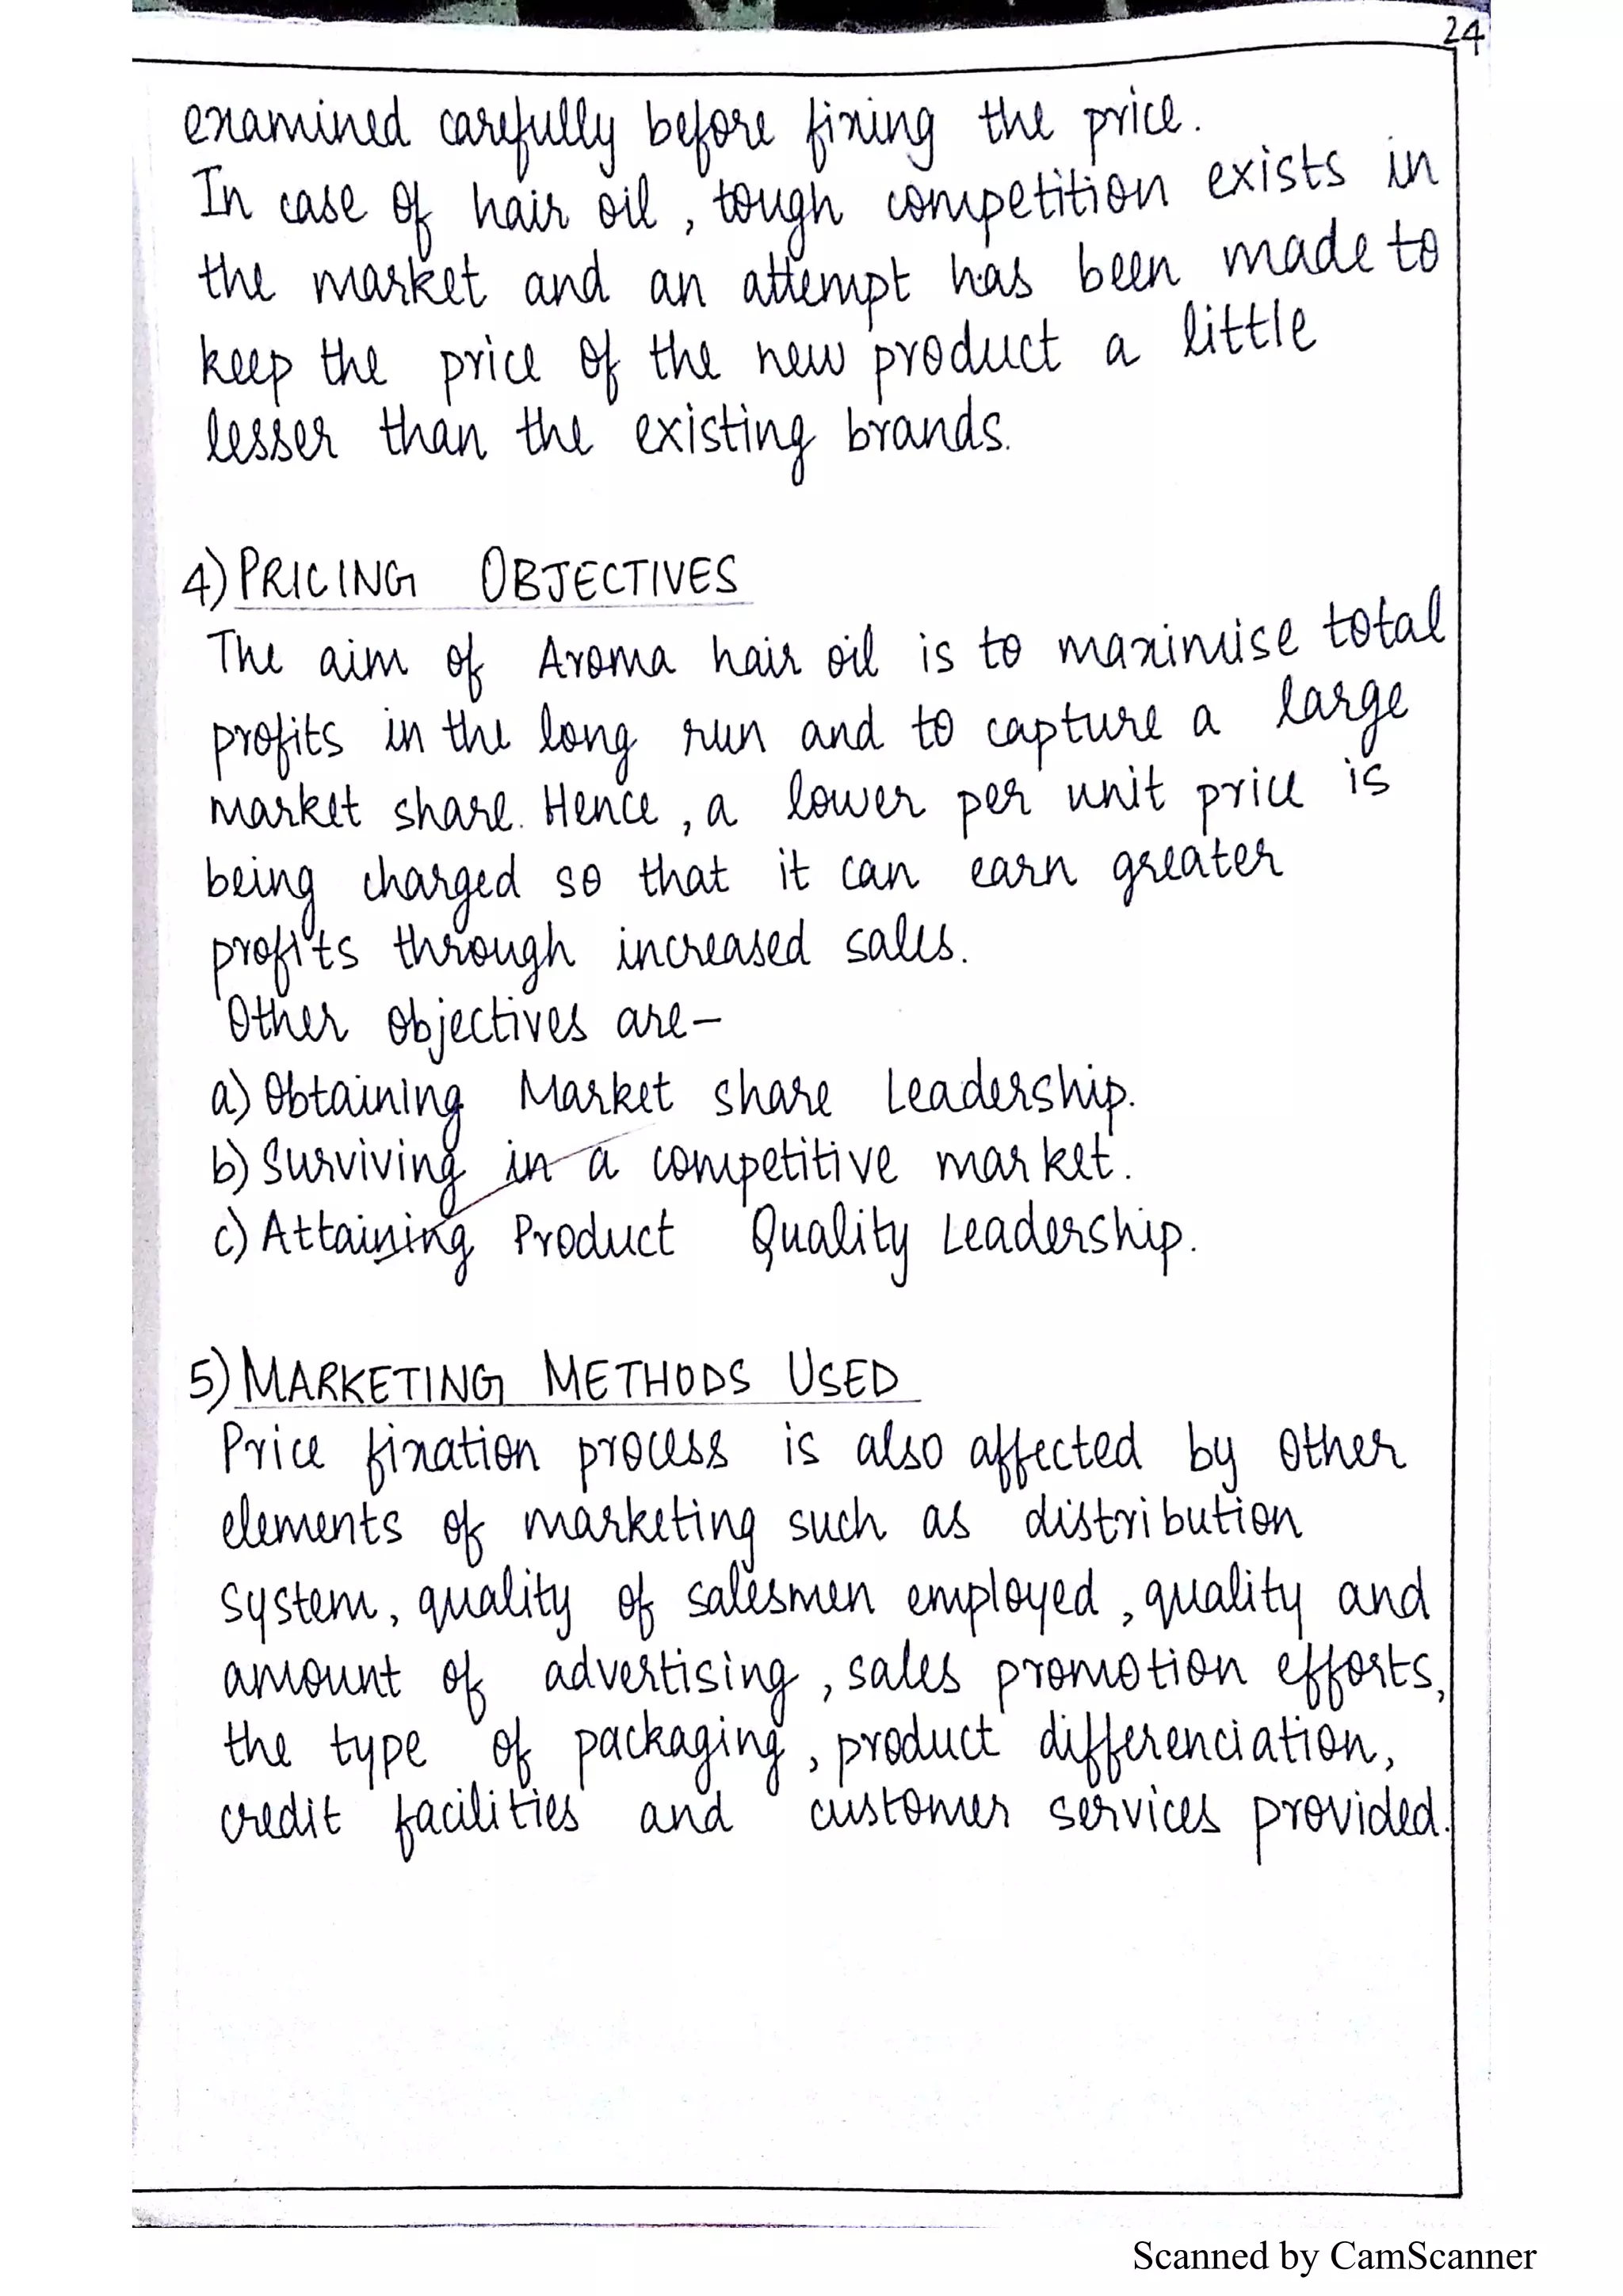 24
examined carefully before fixing the price.
In case of hair oil, tough competition exists in
the market and an attempt has been made to
keep the price of the new product a little
lesser than the existing brands.
4) PRICING OBJECTIVES
The aim of Aroma hair oil is to maximise total
profits in the long run and to capture a large
market share. Hence, a lower per unit price is
being charged so that it can earn greater
profits through increased sales.
Other objectives are-
a) Obtaining Market share Leadership.
b) Surviving in a competitive market.
c) Attaining Product Quality Leadership.
5) MARKETING METHODS USED
Price fixation process is also affected by other
elements of marketing such as distribution
system, quality of salesmen employed, quality and
amount of advertising, sales promotion efforts,
the type of packaging, product differenciation,
credit facilities and customer services provided.
Scanned by CamScanner